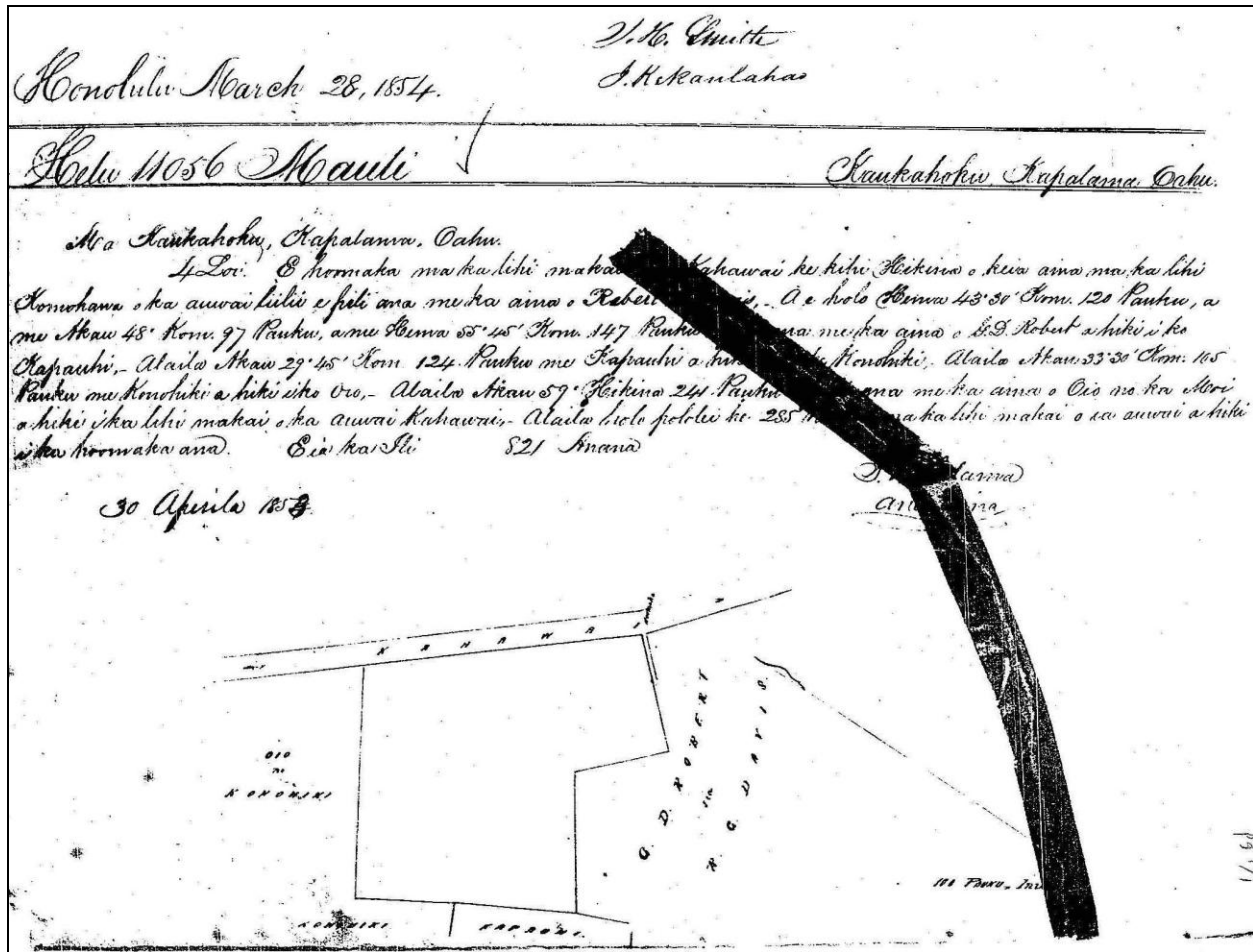 J. H. Smith
J. Kekaulahao
Honolulu March 28, 1854.
Helu 11056 Mauli
Kaukahoku, Kapalama Oahu.
Ma Kaukahoku, Kapalama, Oahu.
4 Loi. E hoomaka ma ka lihi makai Kahawai ke kihi Hikina o keia aina ma ka lihi
Komohana o ka auwai liilii e pili ana me ka aina o Robert - A e holo Hema 43°30' Kom. 120 Pauku, a
me Akau 48° Kom. 97 Pauku, a me Hema 55°45' Kom. 147 Pauku me ka aina o G.D. Robert a hiki i ko
Kapauhi,- Alaila Akau 29°45' Kom 124 Pauku me Kapauhi a Konohiki,- Alaila Akau 33°30' Kom. 105
Pauku me Konohiki a hiki i ko Oio,- Alaila Akau 59° Hikina 241 Pauku ana me ka aina o Oio no ka Moi
a hiki i ka lihi makai o ka auwai Kahawai,- Alaila holo pololei ke 285 ma ka lihi makai o ia auwai a hiki
i ka hoomaka ana. Eia ka Ili 821 Anana
30 Aperila 1853
KAHAWAI
OIO
no
KONOHIKI
G. D. ROBERT
R. G. DAVIS.
KONOHIKI
KAPAUHI.
100 Pauku